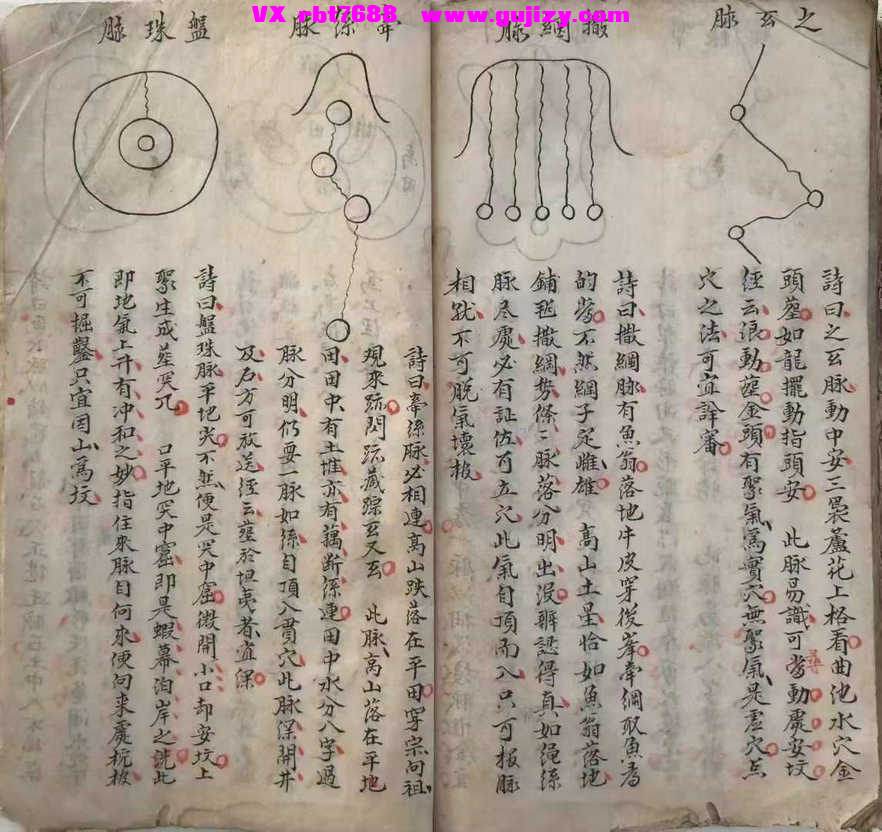 VX rbt7688 www.gujizy.com
之玄脉
撒網脉
牽絲脉
盤珠脉
詩曰之玄脉動中安三裊蘆花上格看曲池水穴金
頭塟如龍擺動指頭安 此脉易識可尋當動處安坟
経云浪動塟金頭有聚氣為實穴無聚氣是虚穴点
穴之法可宜詳審
詩曰撒網脉有魚翁落地牛皮穿後峯牽綱取魚為
的當不然網子定雌雄 高山土星恰如魚翁落地
鋪毡撒網勢條二脉落分明出没辨認得真如繩絲
脉尽處必有証佐可立穴此氣自頂而入只可接脉
相就不可脱氣壞接
詩曰牽絲脉必相連高山跌落在平田穿宗问祖
規來踪閃踪藏踪玄又玄 此脉高山落在平地
田田中有土堆亦有藕断絲連田中水分八字過
脉分明仍要一脉如絲自頂入貫穴此脉深開井
及后方可放送経云塟於坦夷者宜深
詩曰盤珠脉平地突不然便是突中窟微開小口却安坟上
聚生成塟冥兀 口平地突中窟即是蝦蟇泊岸之說此
即地氣上升有冲和之妙指住來脉自何來便向来處梔接
不可掘鑿只宜因山為坟